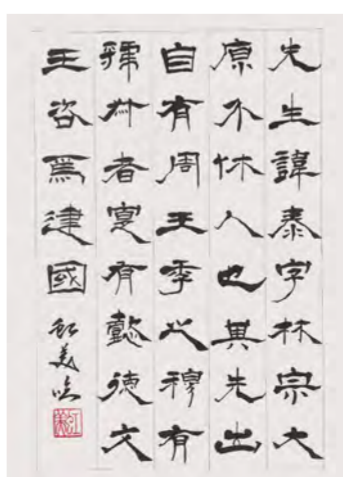 先生諱泰字林宗大
原介休人也其先出
自有周王季之穆有
虢叔者寔有懿德文
王咨焉建國
美吟